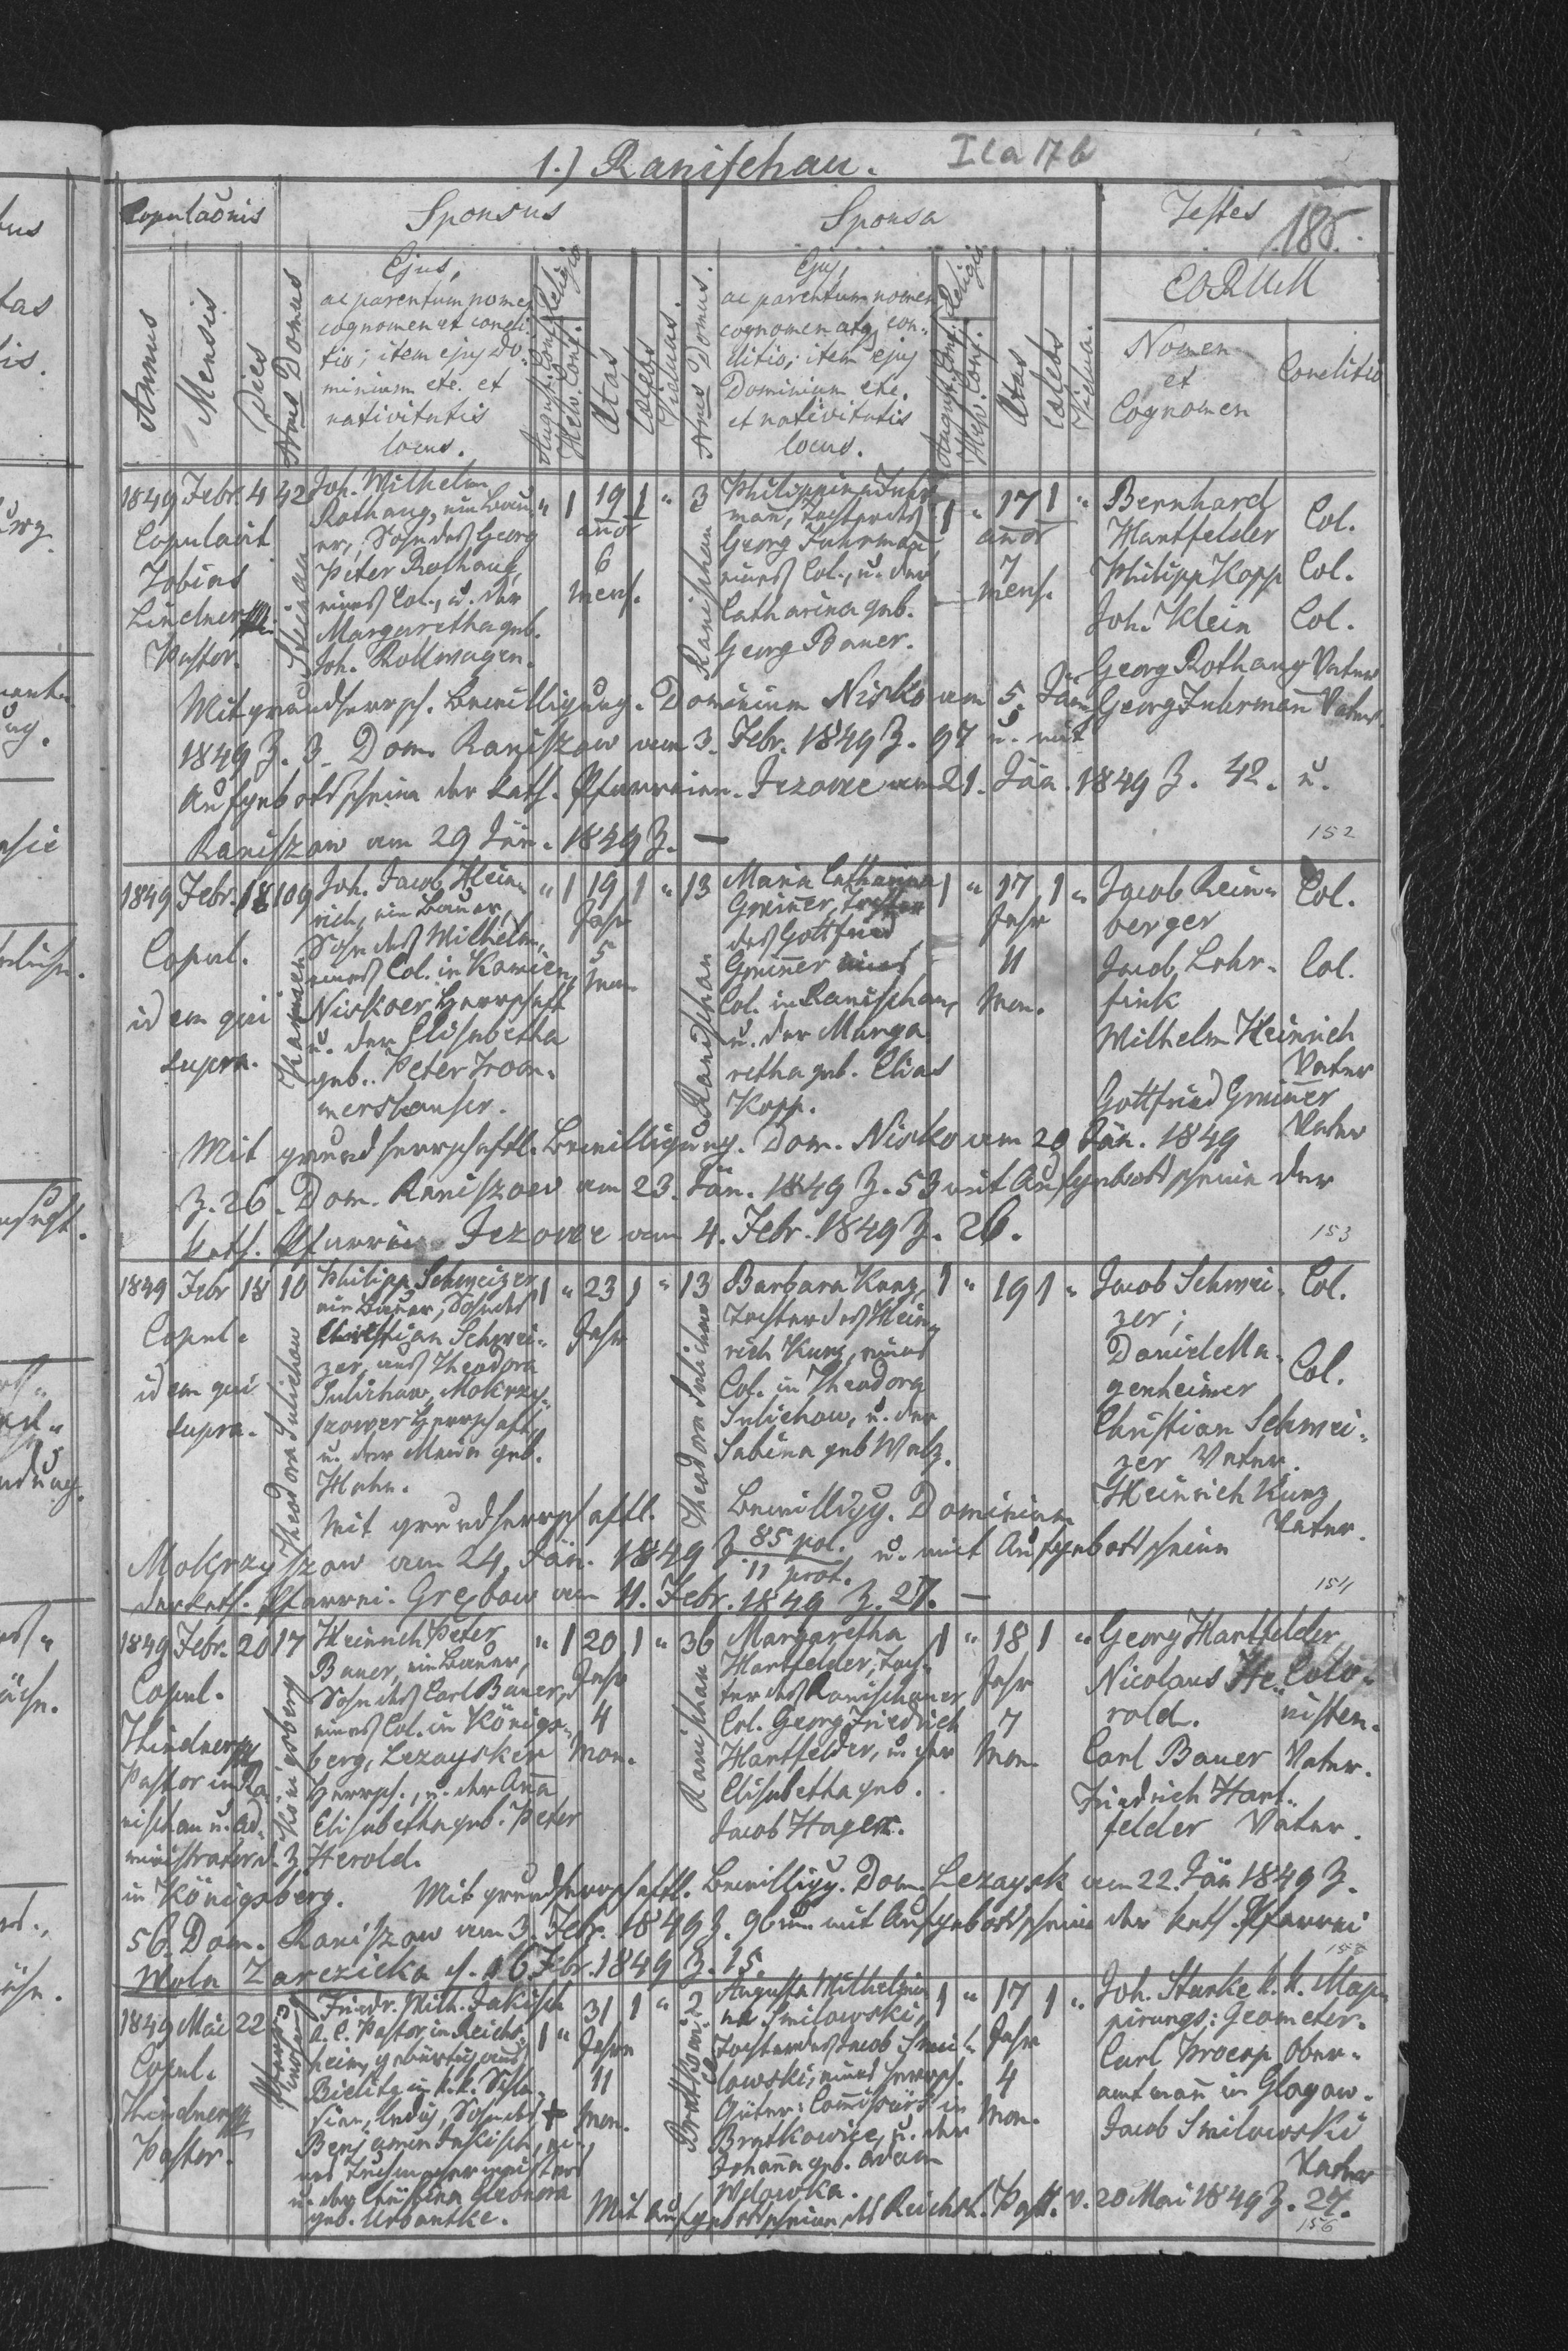 1.) Ranischau.
I la 17 b
Copulaõnis
Sponsus
Sponsa
Testes
185.
Annus
Mensis
Dies
Nrus Domus
Ejus,
ac parentum nomen
cognomen et condi-
tio; item ejus Do-
minium etc. et
nativitatis
locus.
Religio
August. Conf.
Helv. Conf.
Ætas
Cælebs
Viduus.
Nrus Domus.
Ejus,
ac parentum nomen
cognomen atq con-
ditio; item ejus
Dominium etc.
et nativitatis
locus.
Religio
August. Conf.
Helv. Conf.
Ætas
Cælebs
Vidua.
EORUM
Nomen
et
Cognomen
Conditio
1849 Febr. 4
Copulavit
Tobias
Lindner
Pastor.
42
Steinau
Joh. Wilhelm
Rothaug, ein Bau-
er, Sohn des Georg
Peter Rothaug,
eines Col., u. der
Margaretha geb.
Joh. Rollwagen.
" 1 19 1 "
anor
6
mens.
3
Ranischau
Philippina Fuhr-
mañ, Tochter des
Georg Fuhrmañ
eines Col., u. der
Catharina geb.
Georg Bauer.
1 " 17 1 "
anor
7
mens.
Bernhard
Hartfelder Col.
Philipp Kopp Col.
Joh. Klein Col.
Georg Rothaug Vater
Georg Fuhrmañ Vater.
Mit grundherrsch. Bewilligung. Dominium Nisko vom 5. Jän.
1849 Z. 3. Dom. Raniszow vom 3. Febr. 1849 Z. 97 u. mit
Aufgebottscheine der kath. Pfarreien. Jezowe vom 21. Jän. 1849 Z. 42. u.
Raniszow am 29 Jän. 1849 Z. —
152
1849 Febr. 18
Copul.
idem qui
supra.
109
Kamien
Joh. Jacob Hein-
rich, ein Bauer,
Sohn des Wilhelm,
eines Col. in Kamien,
Niskoer Herrschaft
u. der Elisabetha
geb. Peter Trom-
mershauser.
" 1 19 1 "
Jahr
5
Mon
13
Ranischau
Maria Catharina
Greiner, Tochter
des Gottfried
Greiner eines
Col. in Ranischau,
u. der Marga-
retha geb. Elias
Kopp.
1 " 17 1 "
Jahr
11
Mon.
Jacob Rein-
berger Col.
Jacob Lohr-
fink Col.
Wilhelm Heinrich
Vater
Gottfried Greiner
Vater
Mit grundherrschaftl. Bewilligung. Dom. Nisko vom 20 Jän. 1849
Z. 26. Dom. Raniszow am 23. Jän. 1849 Z. 53 mit Aufgebottscheine der
kath. Pfarrei Jezowe vom 4. Febr. 1849 Z. 26.
153
1849 Febr 18
Copul.
idem qui
supra.
10
Theodora Sulichow
Philipp Schweizer
ein Bauer, Sohn des
Christian Schwei-
zer, aus Theodora
Sulichow, Mokrzy-
szower Herrschaft,
u. der Maria geb.
Hahn.
1 " 23 1 "
Jahr
13
Theodora Sulichow
Barbara Kunz,
Tochter des Hein-
rich Kunz, eines
Col. in Theodora
Sulichow, u. der
Sabina geb Walz.
1 " 19 1 "
Jacob Schwei-
zer; Col.
Daniel Ma-
genheimer Col.
Christian Schwei-
zer Vater.
Heinrich Kunz
Vater.
Mit grundherrschaftl. Bewilligg. Dominium
Mokrzyszow vom 24. Jän. 1849 Z 85 pol. / 11 prot. u. mit Aufgebottscheine
der kath. Pfarrei. Grębow vom 11. Febr. 1849 Z. 27. —
154
1849 Febr. 20
Copul.
TLindner
Pastor in Ra-
nischau u. Ad-
ministrator d. Z.
in Königsberg.
17
Königsberg
Heinrich Peter
Bauer, ein Bauer,
Sohn des Carl Bauer,
eines Col. in Königs-
berg, Lezaysker
Herrsch., u. der Aña
Elisabetha geb. Peter
Herold.
" 1 20 1 "
Jahr
4
Mon.
36
Ranischau
Margaretha
Hartfelder, Toch-
ter des Ranischauer
Col. Georg Friedrich
Hartfelder, u. der
Elisabetha geb.
Jacob Hager.
1 " 18 1 "
Jahr
7
Mon.
Georg Hartfelder
Nicolaus He- Colo-
rold. nisten.
Carl Bauer Vater.
Friedrich Hart-
felder Vater.
Mit grundherrschaftl. Bewilligg. Dom. Lezaysk vom 22. Jän 1849 Z.
56. Dom. Raniszow am 3. Febr. 1849 Z. 96 u. mit Aufgebottscheine der kath. Pfarrei
Wola Zarezicka d. 16 Febr. 1849 Z. 15.
155
1849 Mai 22
Copul.
TLindner
Pastor.
3
Friedr. Wilh. Jakisch
A. C. Pastor in Reichs-
heim, gebürtig aus
Bielitz in k.k. Schle-
sien, ledig, Sohn des +
Benjamin Jakisch, ei-
nes Tuchmachermeisters
u. der Christina Eleonora
geb. Urbantke.
1 "
31 1 "
Jahre
11
Mon.
2
Augusta Wilhelmi-
na Smilowski,
Tochter des Jacob Smi-
lowski, eines herrsch.
Güter: Comissärs in
Bratkowice, u. der
Johaña geb. Adam
Wdowka.
1 " 17 1 "
Jahr
4
Mon.
Joh. Starke k. k. Map-
pirungs: Geometer.
Carl Procop Ober-
amtmañ in Glogow.
Jacob Smilowski
Vater
Mit Aufgebottscheine des Reichsh. Past. v. 20 Mai 1849 Z. 27.
156